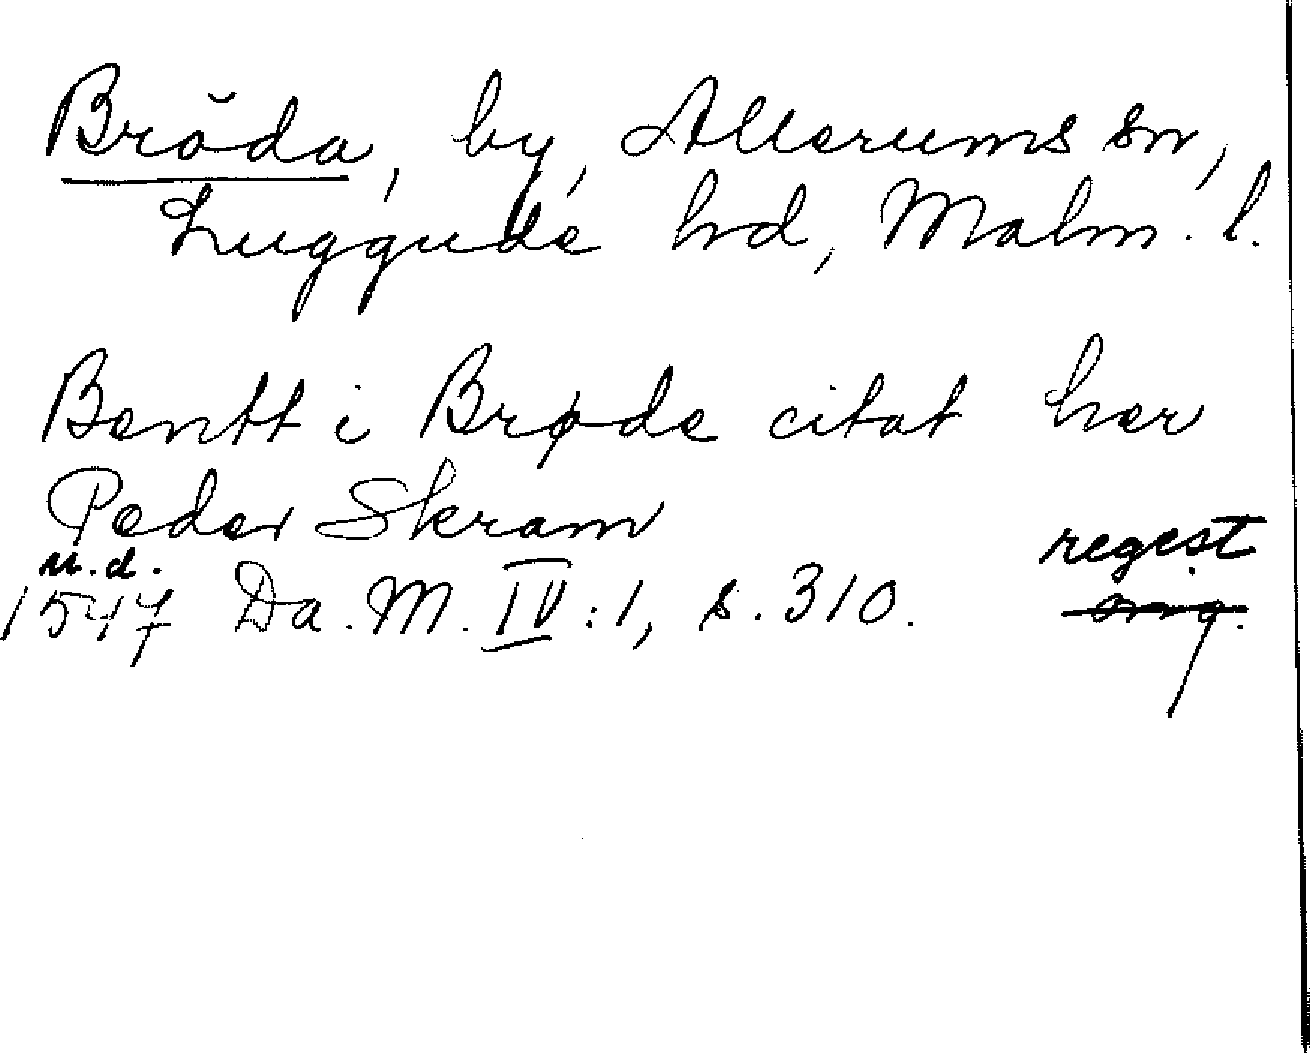 Bröda, by, Allerums sn,
Luggude hd, Malm. l.
Bentt i Brøde citat her
Peder Skram
u.d. regist
1547 Da. M. IV:1, s. 310.